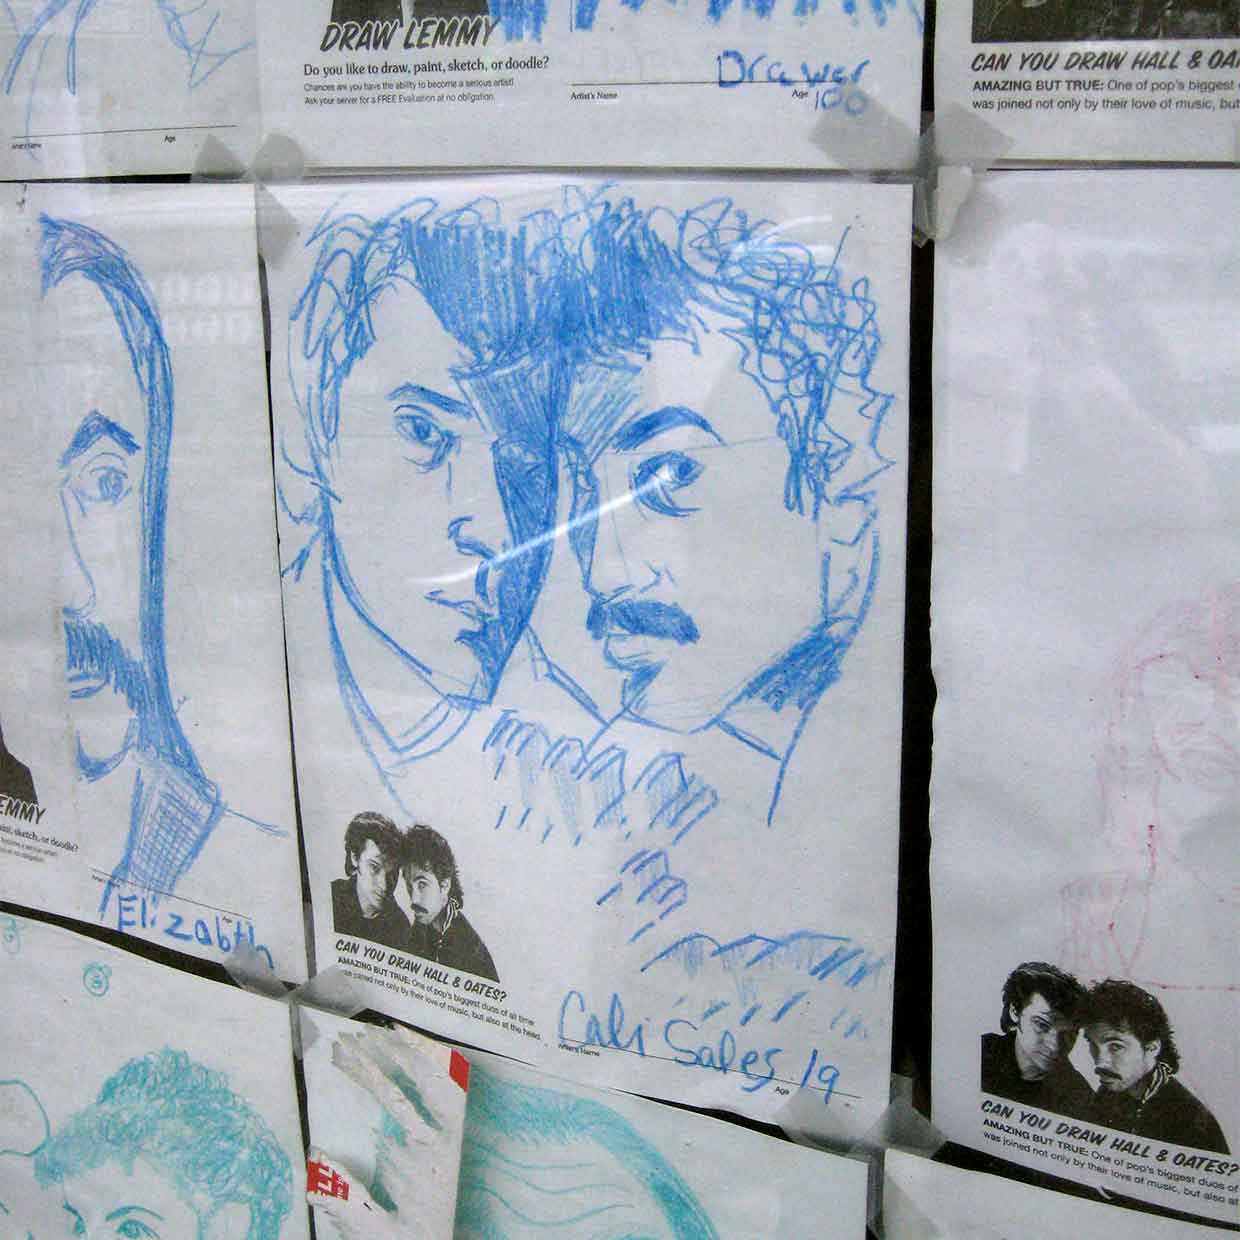 DRAW LEMMY
Do you like to draw, paint, sketch, or doodle?
Chances are you have the ability to become a serious artist!
Ask your server for a FREE Evaluation at no obligation.
Drawer
Artist's Name
Age
100
CAN YOU DRAW HALL &
AMAZING BUT TRUE: One of pop's biggest
was joined not only by their love of music, but
Artist's Name
Age
sketch, or doodle?
Age
Elizabth
CAN YOU DRAW HALL & OATES?
AMAZING BUT TRUE: One of pop's biggest duos of all time
was joined not only by their love of music, but also at the head.
Cali Sales 19
Artist's Name
Age
CAN YOU DRAW HALL & OATES?
AMAZING BUT TRUE: One of pop's biggest duos of
was joined not only by their love of music, but also at